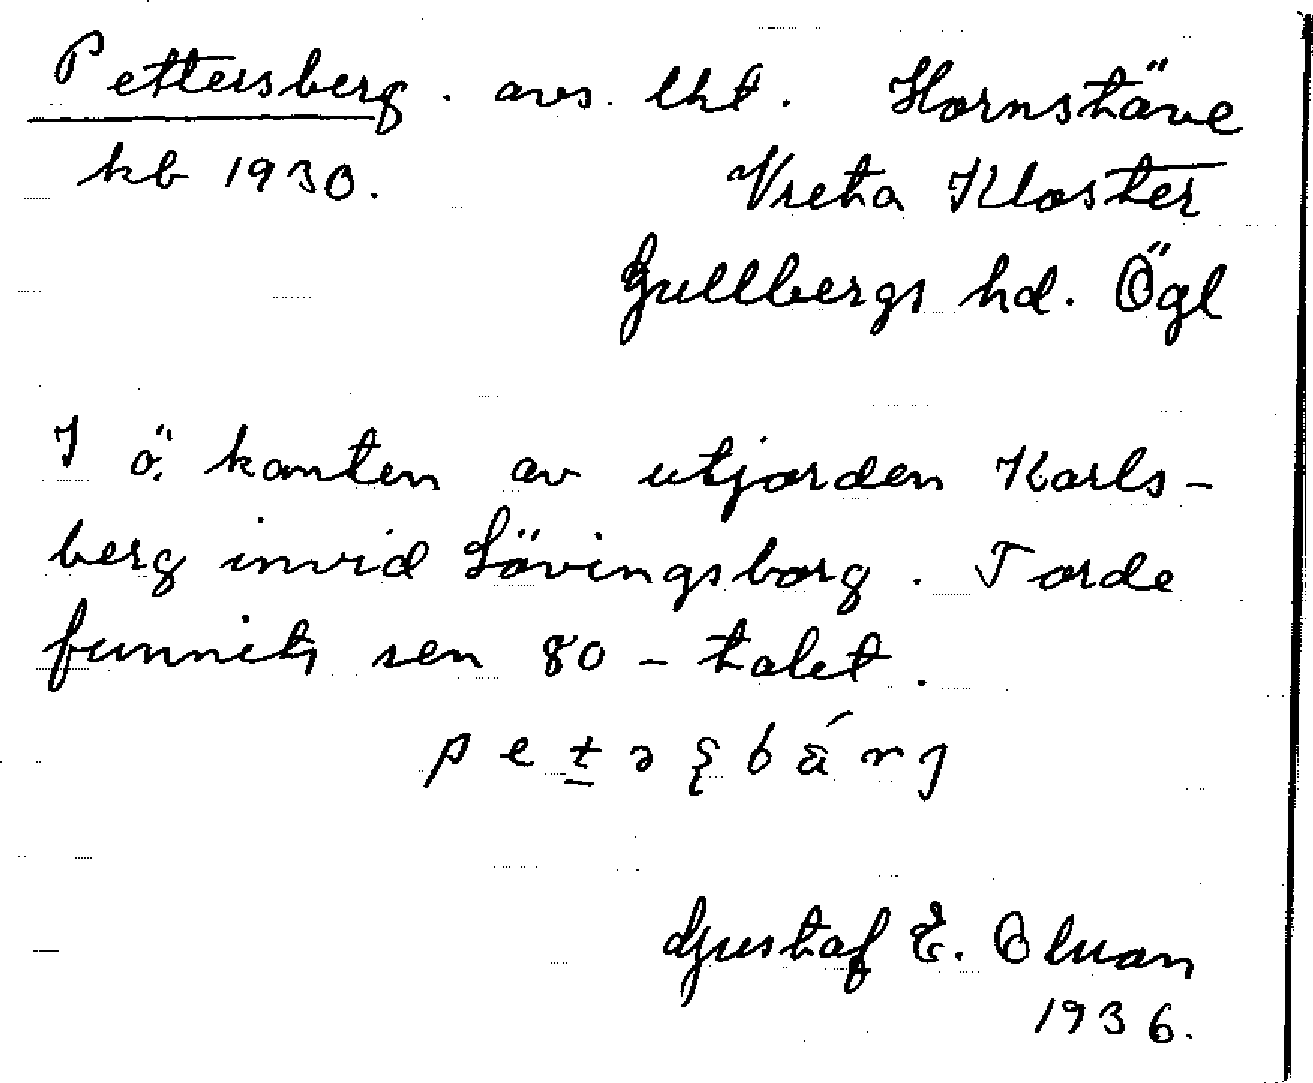 Pettersberg. avs. lht. Hornstäve
kb 1930. Vreta Kloster
Gullbergs hd. Ögl
I ö. kanten av utjorden Karls-
berg invid Lövingsborg. Torde
funnits sen 80-talet.
Gustaf E.
1936.